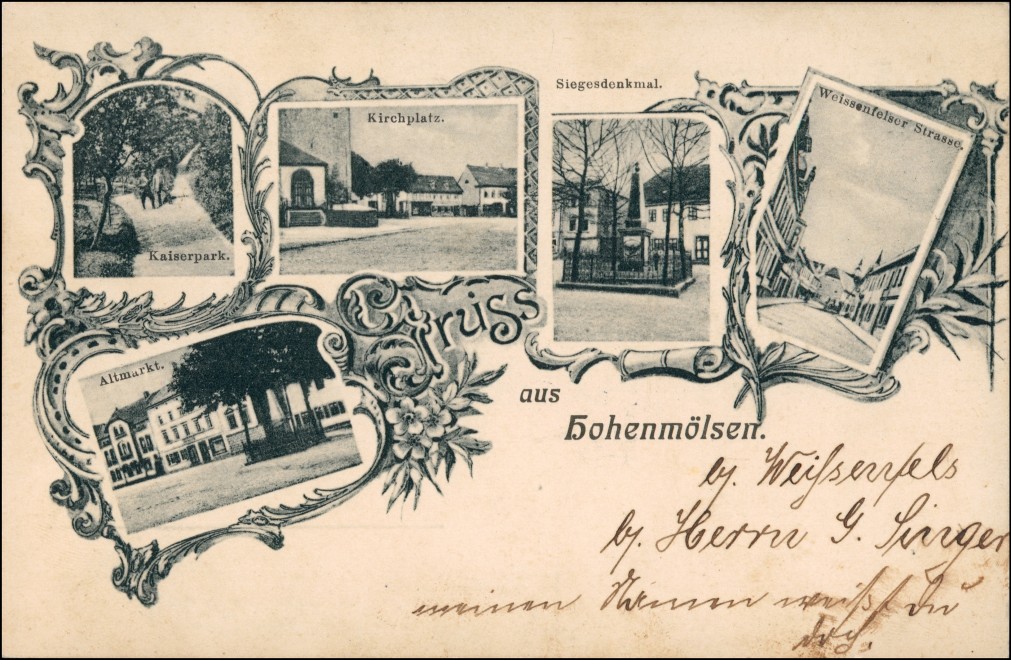 Siegesdenkmal.
Weissenfelser Strasse.
Kirchplatz.
Kaiserpark.
Gruss
Altmarkt.
aus
Hohenmölsen.
bj. Weißenfels
bj. Herrn G. Singer
meinen Namen weißt Du
doch.